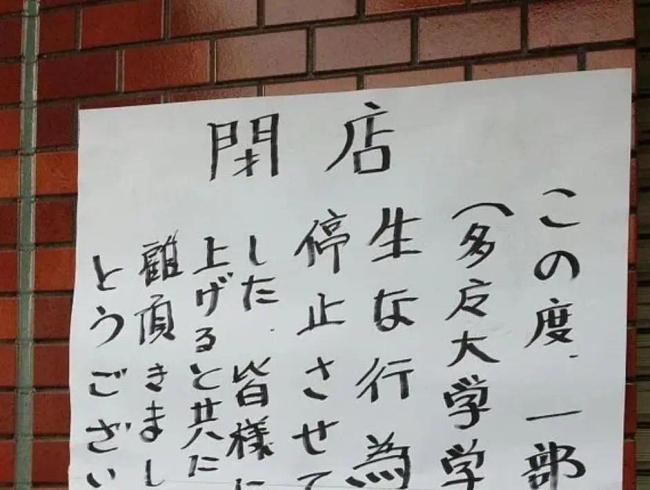 閉店
この度、一部
(多店大学学
生な行為
停止させて
した。皆様に
上げると共に
顧頂きまし
とうござい